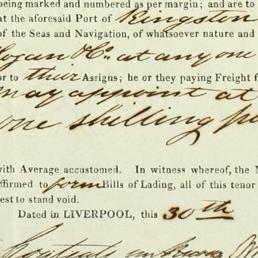 being marked and numbered as per margin; and are to
at the aforesaid Port of Kingston
of the Seas and Navigation, of whatsoever nature and
& Co. at any one
or to their Assigns; he or they paying Freight f
may appoint at
one shilling p
with Average accustomed. In witness whereof, the M
affirmed to form Bills of Lading, all of this tenor
rest to stand void.
Dated in LIVERPOOL, this 30th